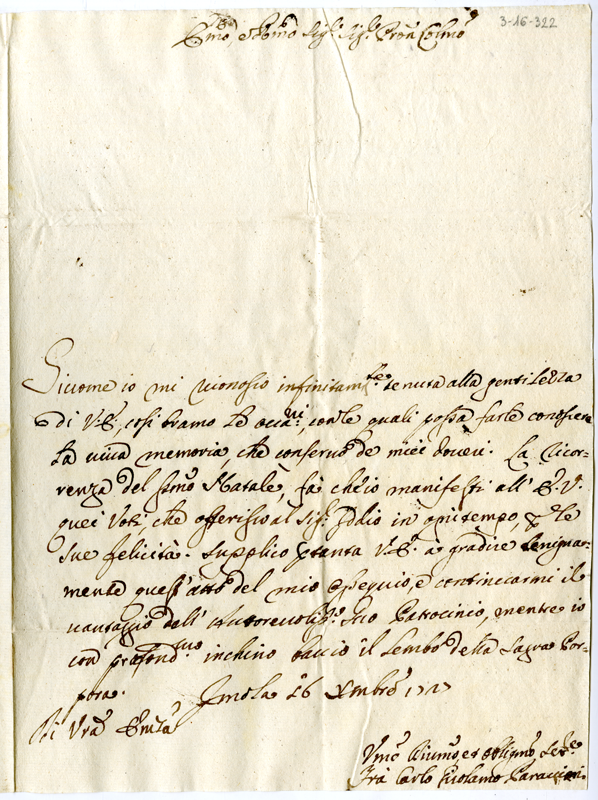 3-16-322
Emo, e Rmo Sig.r Sig.r Pron Colmo
Siccome io mi riconosco infinitam.te tenuta alla gentilezza
di V.E., così bramo le occa.ni, con le quali possa farle conoscere
la viva memoria, che conservo de miei doveri. La Ricor-
renza del S.mo Natale, fà ch'io manifesti all' E.V.
quei Voti, che offerisco al Sig.r Iddio in ogni tempo, p le
sue felicità. Supplico ptanto V.E. à gradire benigna-
mente quest'atto del mio ossequio, e continuarmi il
vantaggio dell' Autorevoliss.o suo Patrocinio, mentre io
con profond.mo inchino baccio il lembo della Sagra Por-
pora. Imola 16 Xmbre 1727
Di Vra Emza
Vmo Diumo, et obligmo Ser.e
Frà Carlo Girolamo